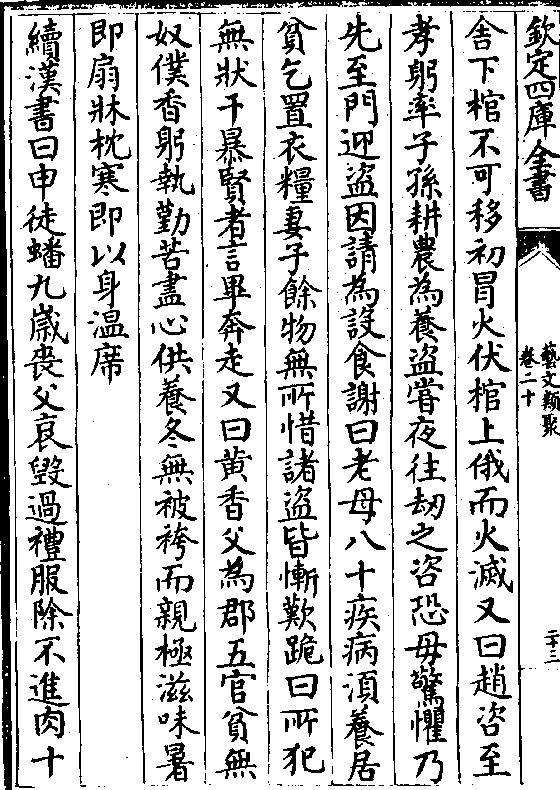 欽定四庫全書
藝文類聚
卷二十
二十三
舍下棺不可移初冒火伏棺上俄而火滅又曰趙咨至
孝躬率子孫耕農為養盜嘗夜往劫之咨恐母驚懼乃
先至門迎盜因請為設食謝曰老母八十疾病須養居
貧乞置衣糧妻子餘物無所惜諸盜皆慚歎跪曰所犯
無狀干暴賢者言畢奔走又曰黄香父為郡五官貧無
奴僕香躬執勤苦盡心供養冬無被袴而親極滋味暑
即扇牀枕寒即以身温席
續漢書曰申徒蟠九歲喪父哀毀過禮服除不進肉十